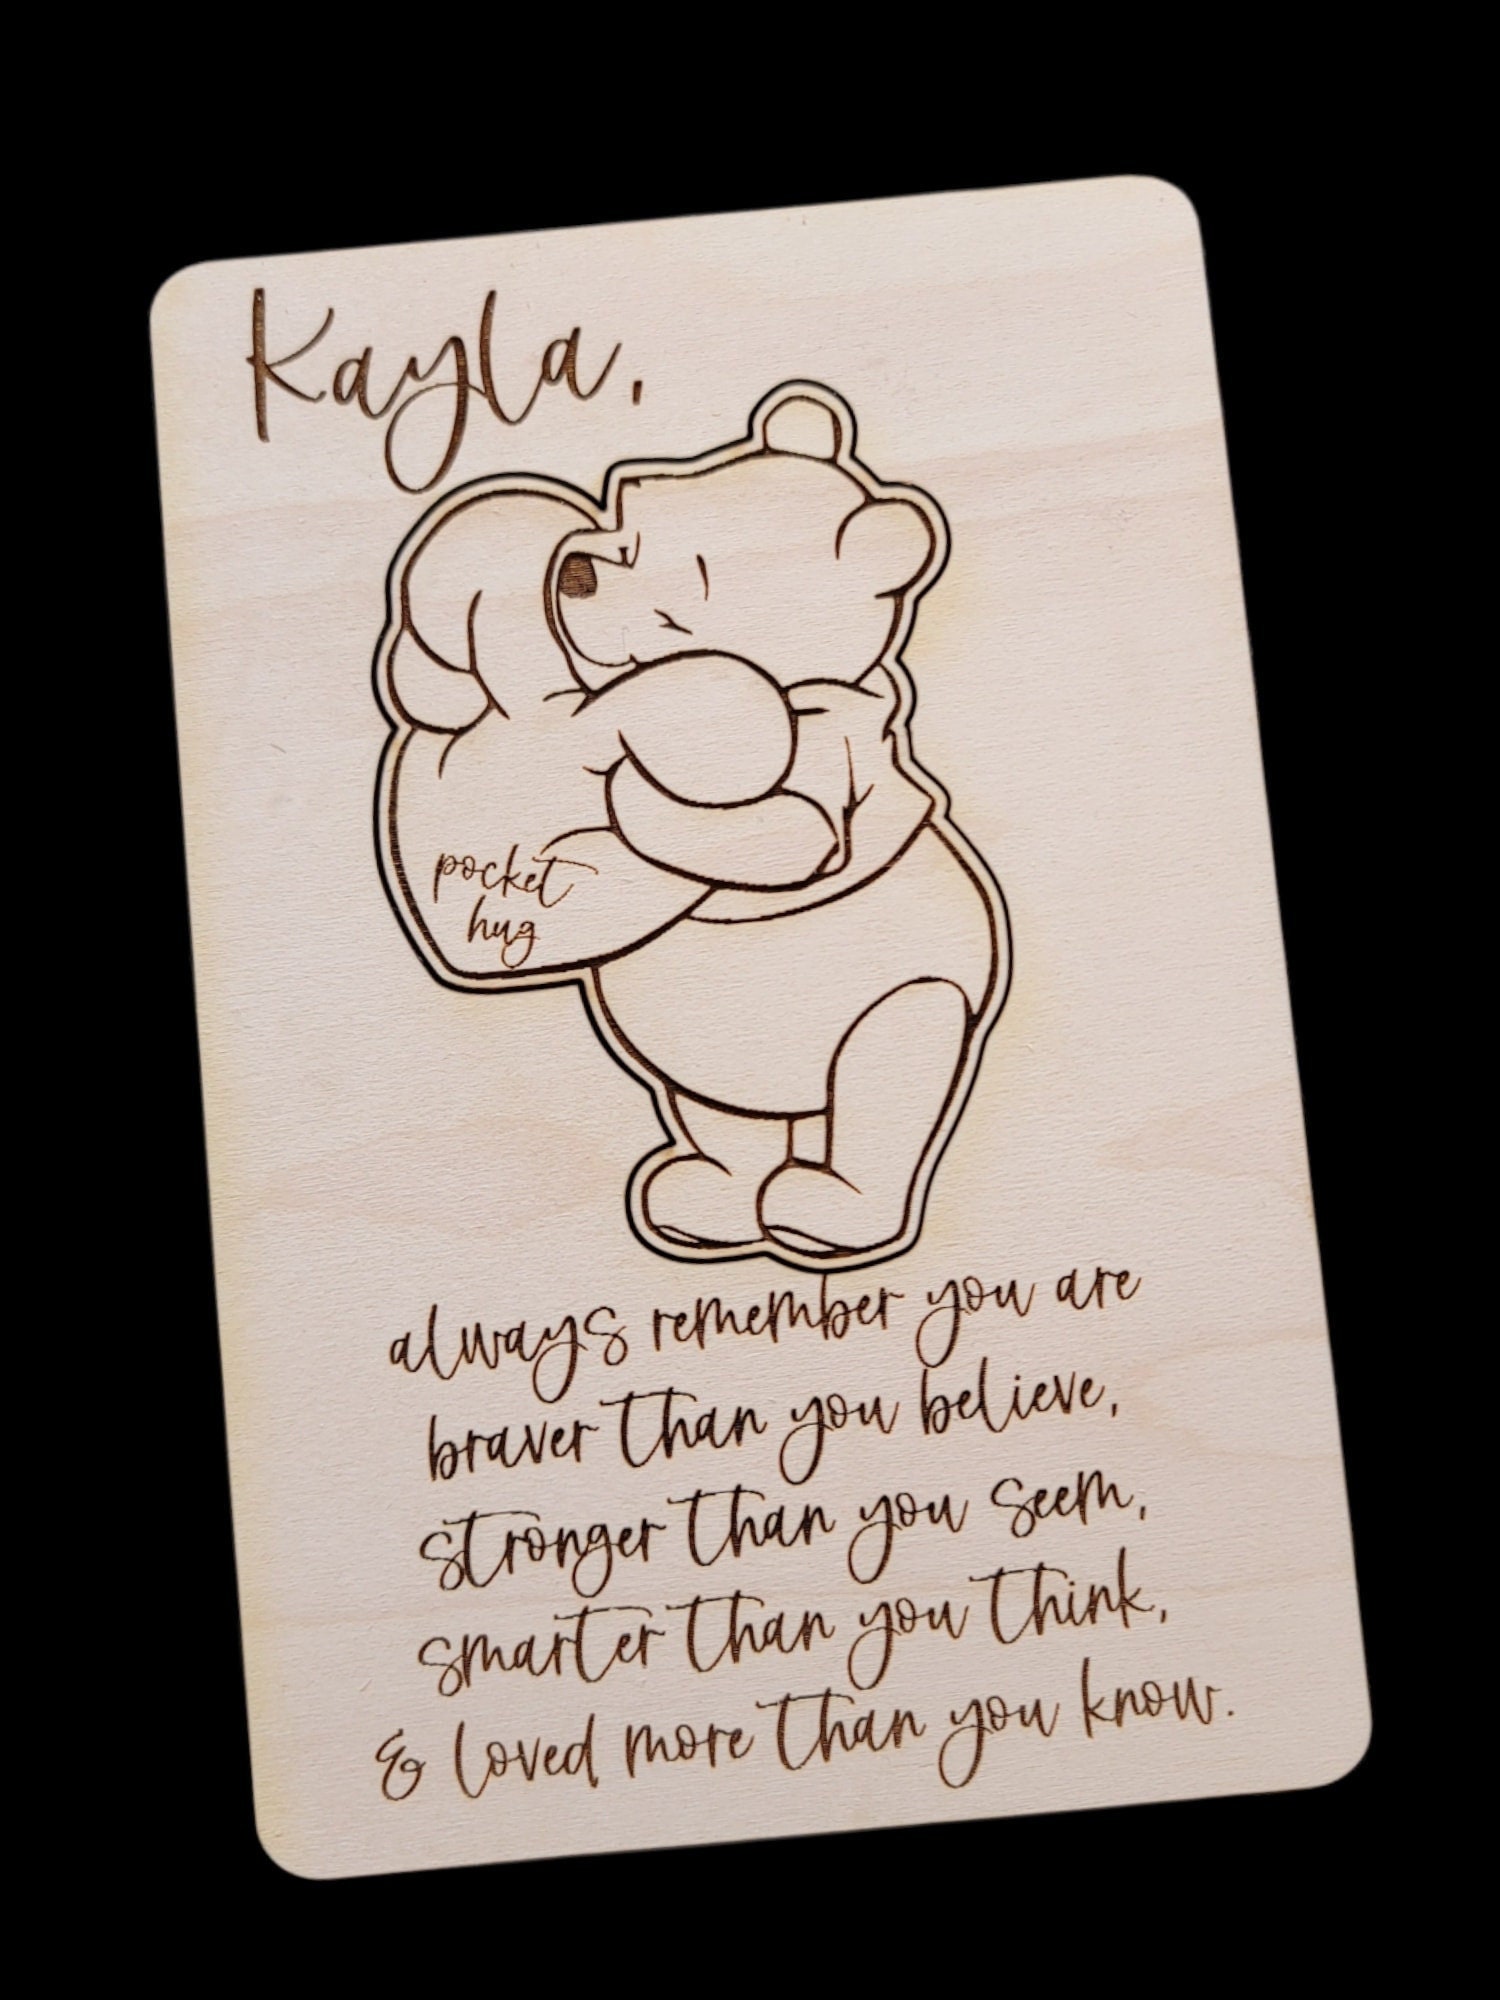 Kayla,
pocket
hug
always remember you are
braver than you believe,
stronger than you seem,
smarter than you think,
& loved more than you know.